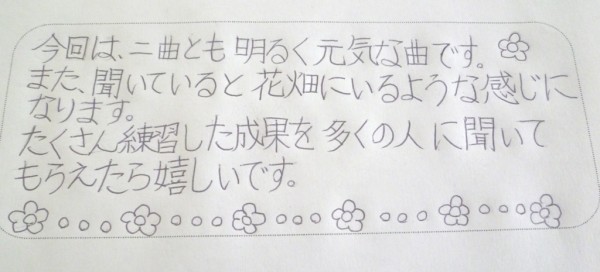 今回は、二曲とも明るく元気な曲です。
また、聞いていると花畑にいるような感じに
なります。
たくさん練習した成果を多くの人に聞いて
もらえたら嬉しいです。